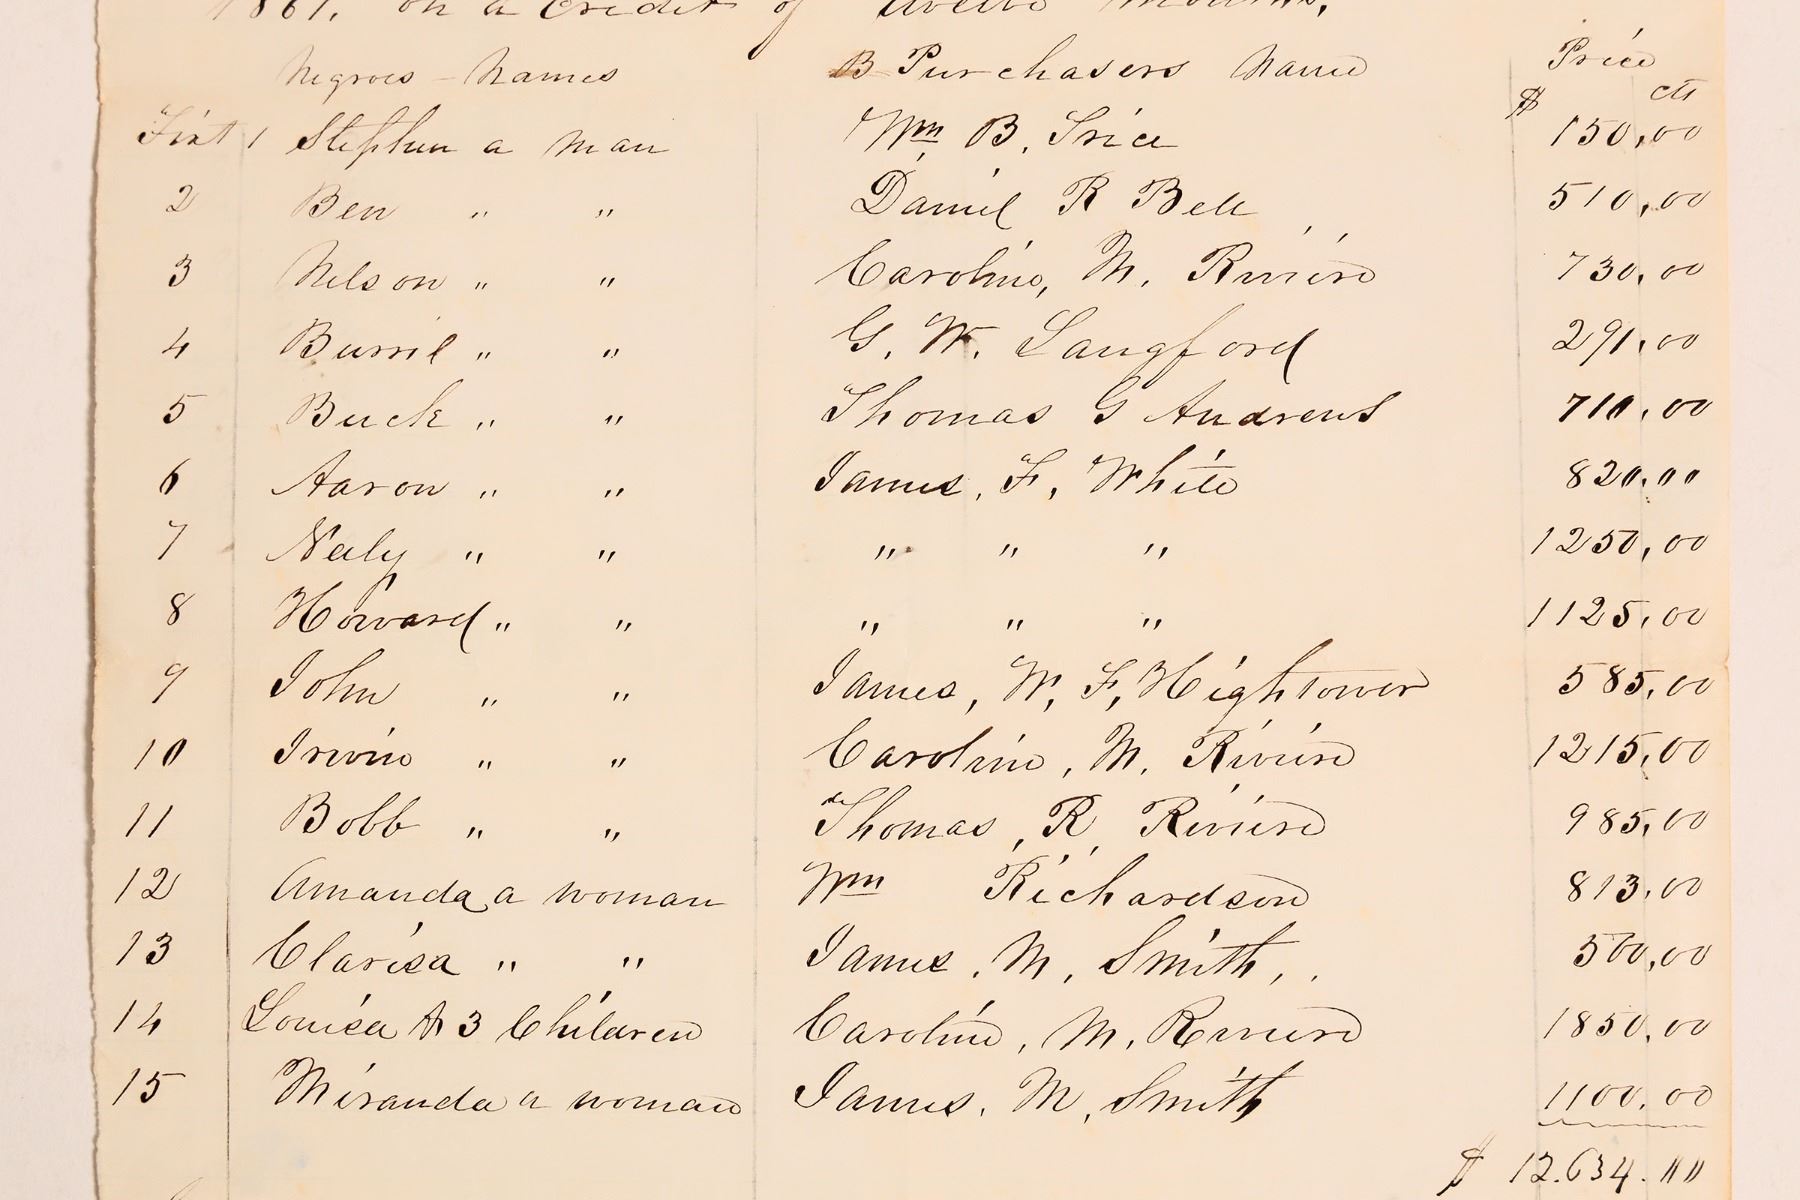 1861. on a Credit of twelve months,
Negroes - Names B Purchasers Name Price
$ cts
First 1 Stephen a man Wm B. Trice 150,00
2 Ben " " Daniel R Bell 510,00
3 Nelson " " Caroline, M. Riviere 730,00
4 Burril " " G. W. Langford 291,00
5 Buck " " Thomas G Andrews 710,00
6 Aaron " " James, F, White 820,00
7 Neely " " " " " 1250,00
8 Howard " " " " " 1125,00
9 John " " James, W, F, Hightower 585,00
10 Irwin " " Caroline, M. Riviere 1215,00
11 Bobb " " Thomas, R, Riviere 985,00
12 Amanda a woman Wm Richardson 813,00
13 Clarisa " " James. M, Smith, . 500,00
14 Louisa & 3 Children Caroline, M, Riviere 1850,00
15 Miranda a woman James. M, Smith 1100.00
$ 12.634.00